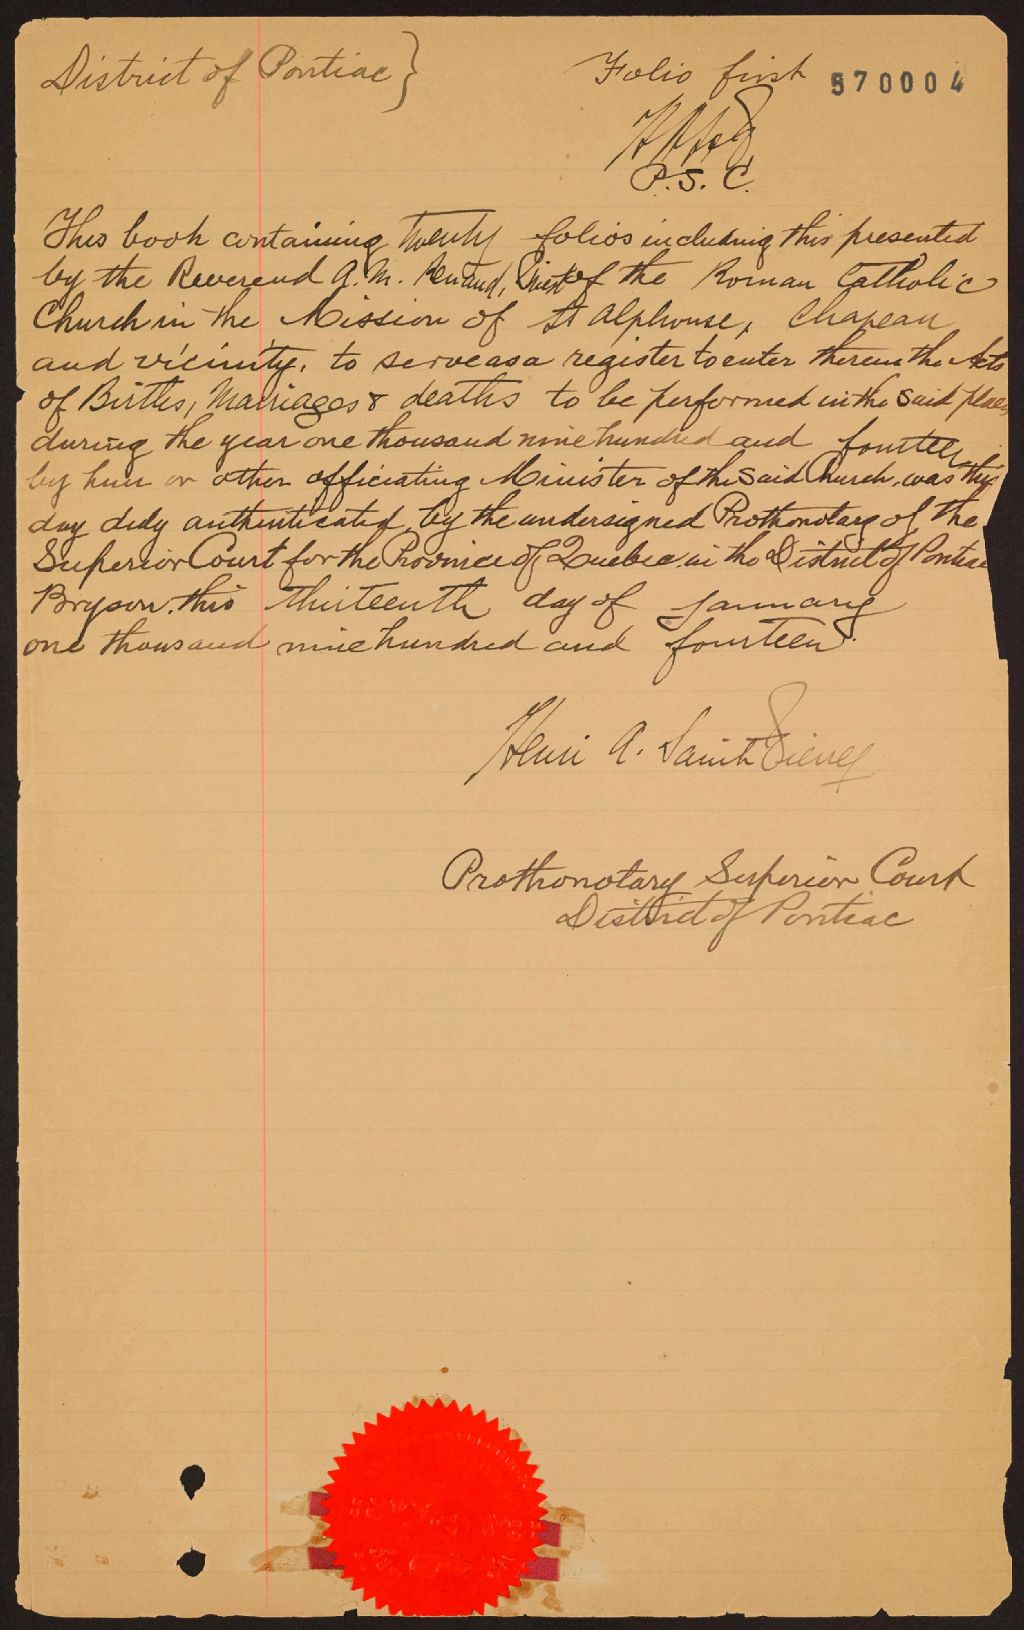 District of Pontiac}
Folio first 570004
P.S.C.
This book containing twenty folios including this presented
by the Reverend A. M. Renaud, Priest of the Roman Catholic
Church in the Mission of St Alphonse, Chapeau
and vicinity, to serve as a register to enter therein the Acts
of Births, Marriages & deaths to be performed in the said place
during the year one thousand nine hundred and fourteen
by him or other officiating Minister of the said Church, was this
day duly authenticated, by the undersigned Prothonotary of the
Superior Court for the Province of Quebec in the District of Pontiac
Bryson, this thirteenth day of January
one thousand nine hundred and fourteen.
Henri A. Saint Pierre
Prothonotary Superior Court
District of Pontiac